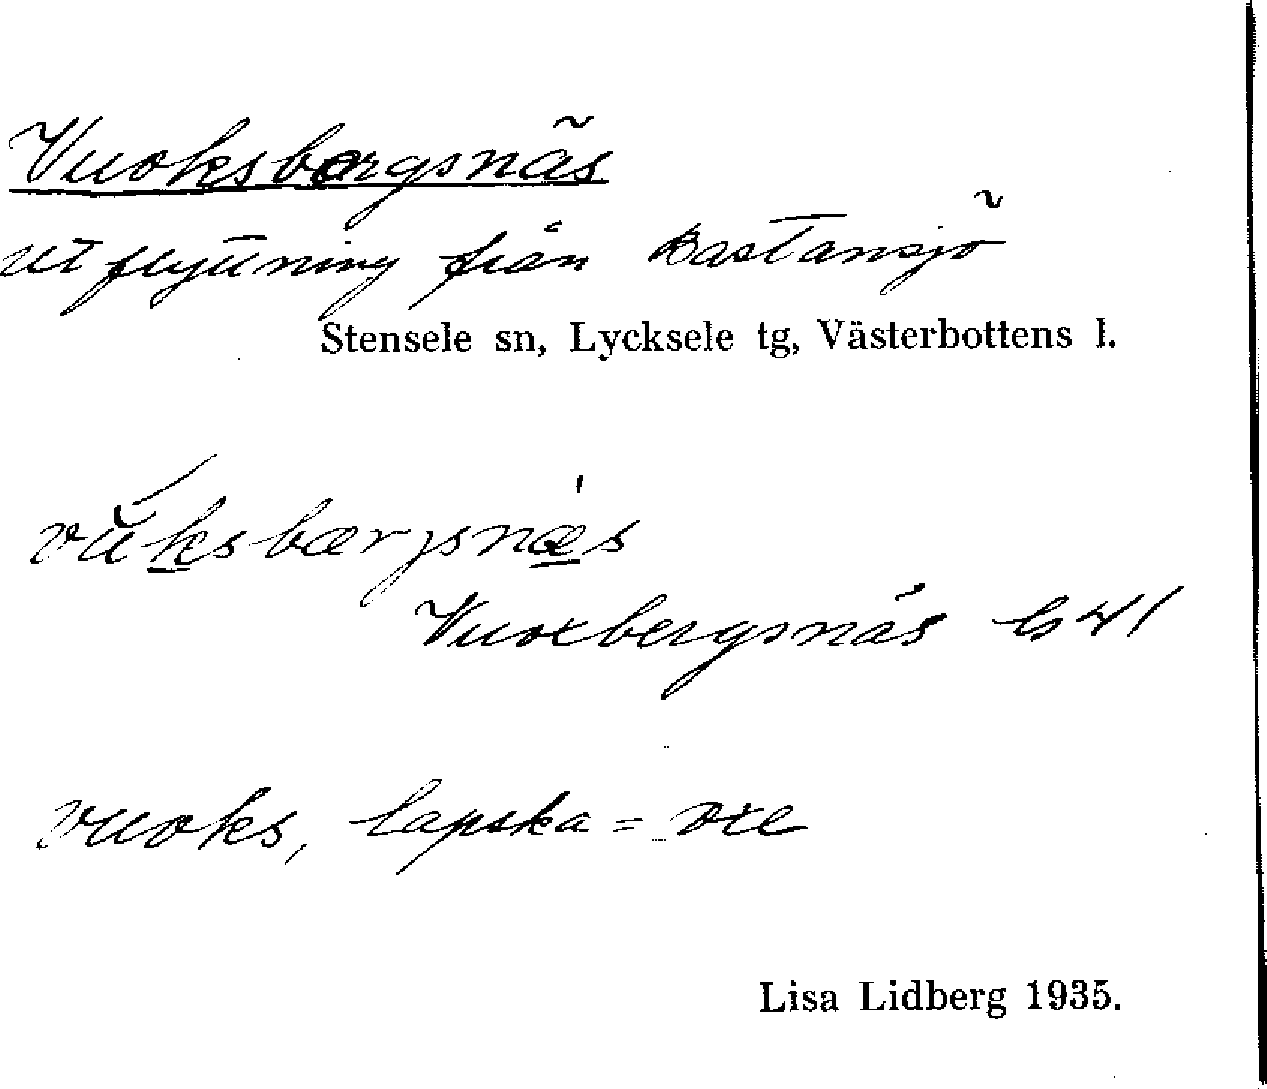 Vuoksbergsnäs
utflyttning från Bastansjö
Stensele sn, Lycksele tg, Västerbottens l.
våksbærjsnæs
Vuoxbergsnäs G 41
vuoks, lapska = oxe
Lisa Lidberg 1935.